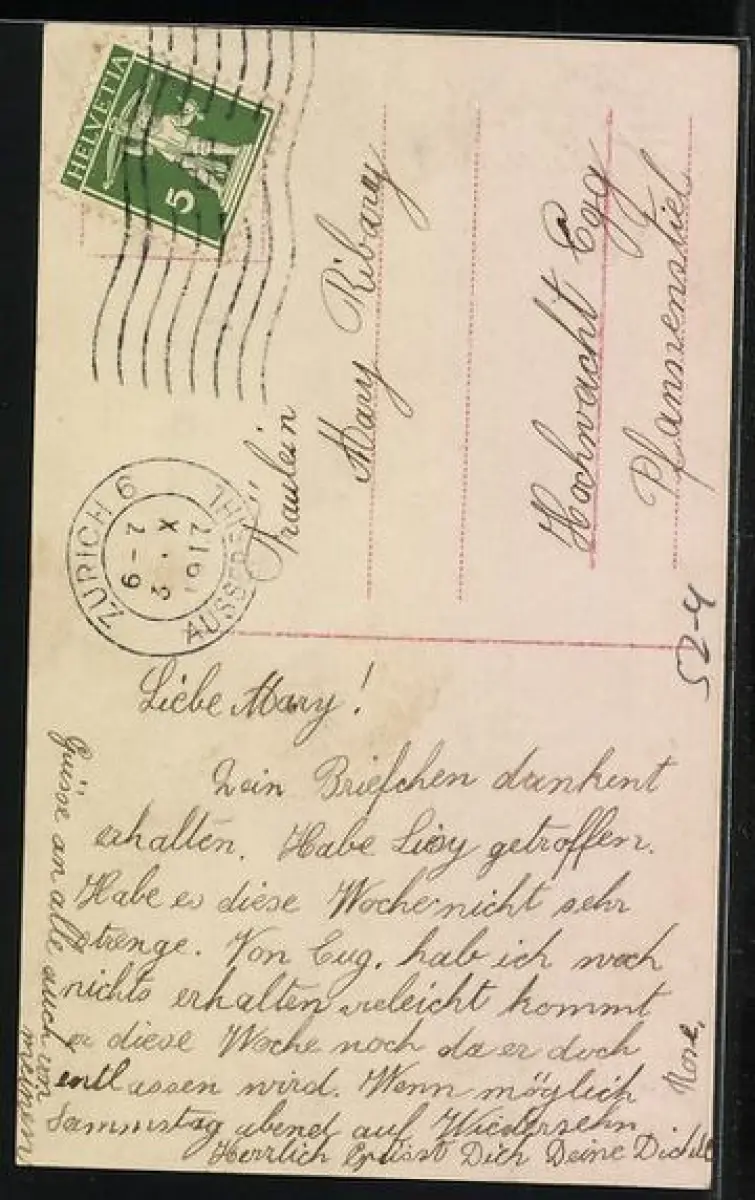 HELVETIA
5
ZÜRICH 6
AUSSERSIHL
2-6
2. X
1917
Fräulein
Mary Ribary
Hochwacht Egg
Pfannenstiel
52-4
Liebe Mary!
Dein Briefchen dankent
erhalten. Habe Lisy getroffen.
Habe es diese Woche nicht sehr
strenge. Von Eug. hab ich noch
nichts erhalten vieleicht kommt
er diese Woche noch da er doch
entlassen wird. Wenn möglich
Sammstag abend auf Wiedersehn
Herrlich Grüsst Dich Deine Dich lb
Rose.
Grüsse an alle auch von
meinen